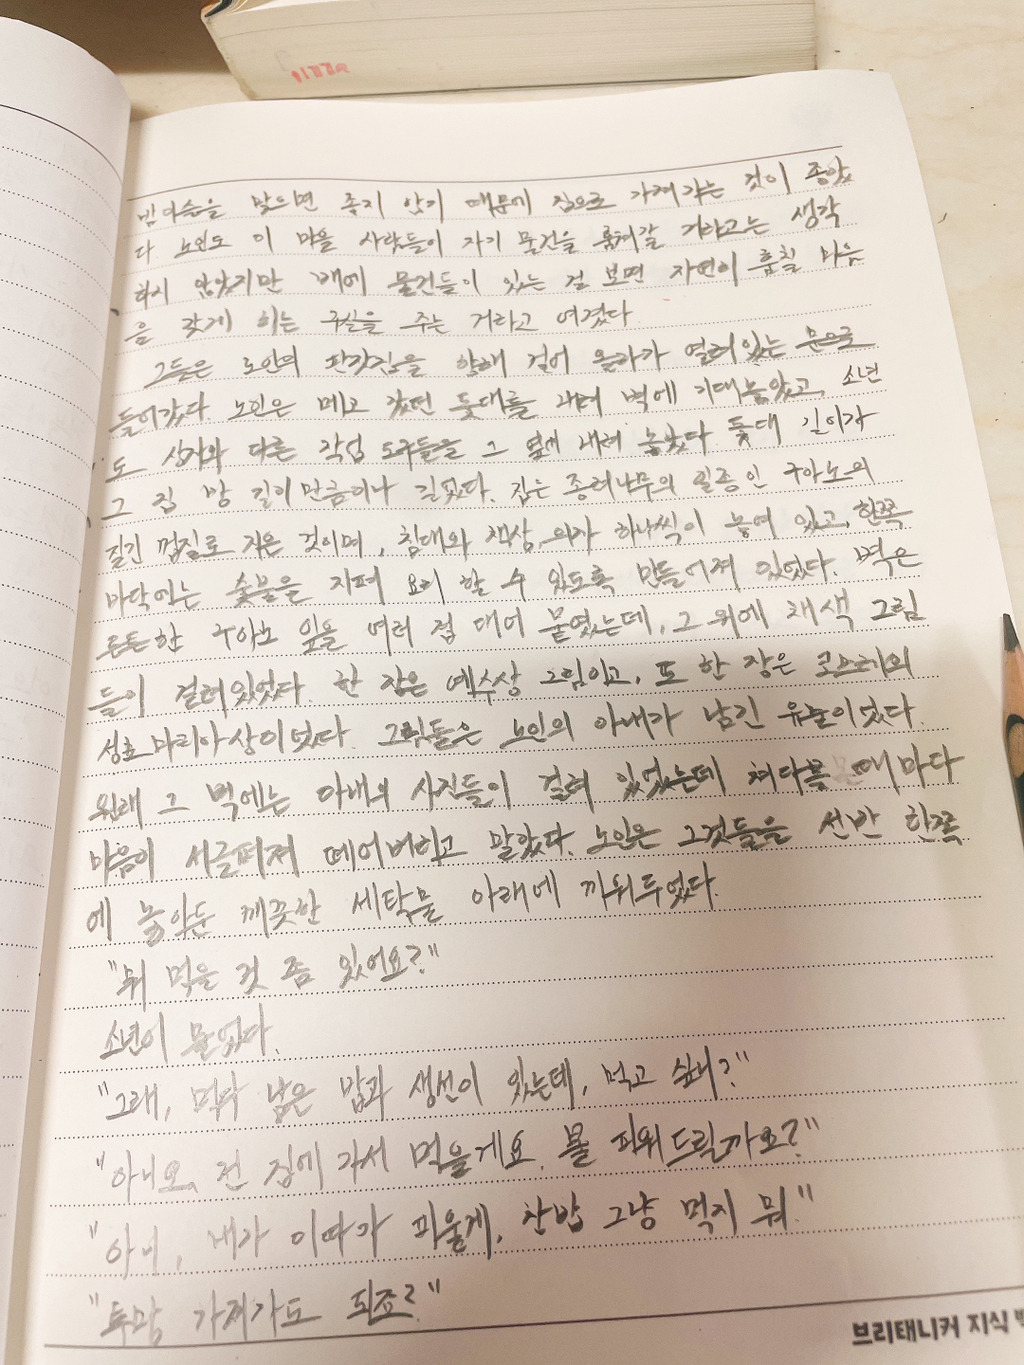 밤이슬을 맞으면 좋지 않기 때문에 집으로 가져가는 것이 좋았
다 노인도 이 마을 사람들이 자기 물건을 훔쳐갈 거라고는 생각
하지 않았지만 배에 물건들이 있는 걸 보면 자연이 훔칠 마음
을 갖게 하는 구실을 주는 거라고 여겼다
그들은 노인의 판잣집을 향해 걸어 올라가 열려있는 문으로
들어갔다. 노인은 메고 갔던 돛대를 내려 벽에 기대놓았고, 소년
도 상자와 다른 작업 도구들을 그 옆에 내려 놓았다 돛대 길이가
그 집 방 길이만큼이나 길었다. 집은 종려나무의 일종인 구아노의
질긴 껍질로 지은 것이며, 침대와 책상, 의자 하나씩이 놓여 있고, 한쪽
바닥에는 숯불을 지펴 요리 할 수 있도록 만들어져 있었다. 벽은
튼튼한 구아노 잎을 여러 겹 대어 붙였는데, 그 위에 채색 그림
들이 걸려있었다. 한 장은 예수상 그림이고, 또 한 장은 코브레의
성모마리아상이었다. 그림들은 노인의 아내가 남긴 유품이었다.
원래 그 벽에는 아내의 사진들이 걸려 있었는데 쳐다볼 때마다
마음이 서글퍼져 떼어버리고 말았다. 노인은 그것들을 선반 한쪽
에 놓아둔 깨끗한 세탁물 아래에 끼워두었다.
"뭐 먹을 것 좀 있어요?"
소년이 물었다.
"그래, 먹다 남은 밥과 생선이 있는데, 먹고 싶니?"
"아니요, 전 집에 가서 먹을게요. 불 피워드릴까요?"
"아니, 내가 이따가 피울게, 찬밥 그냥 먹지 뭐."
"투망 가져가도 되죠?"
브리태니커 지식